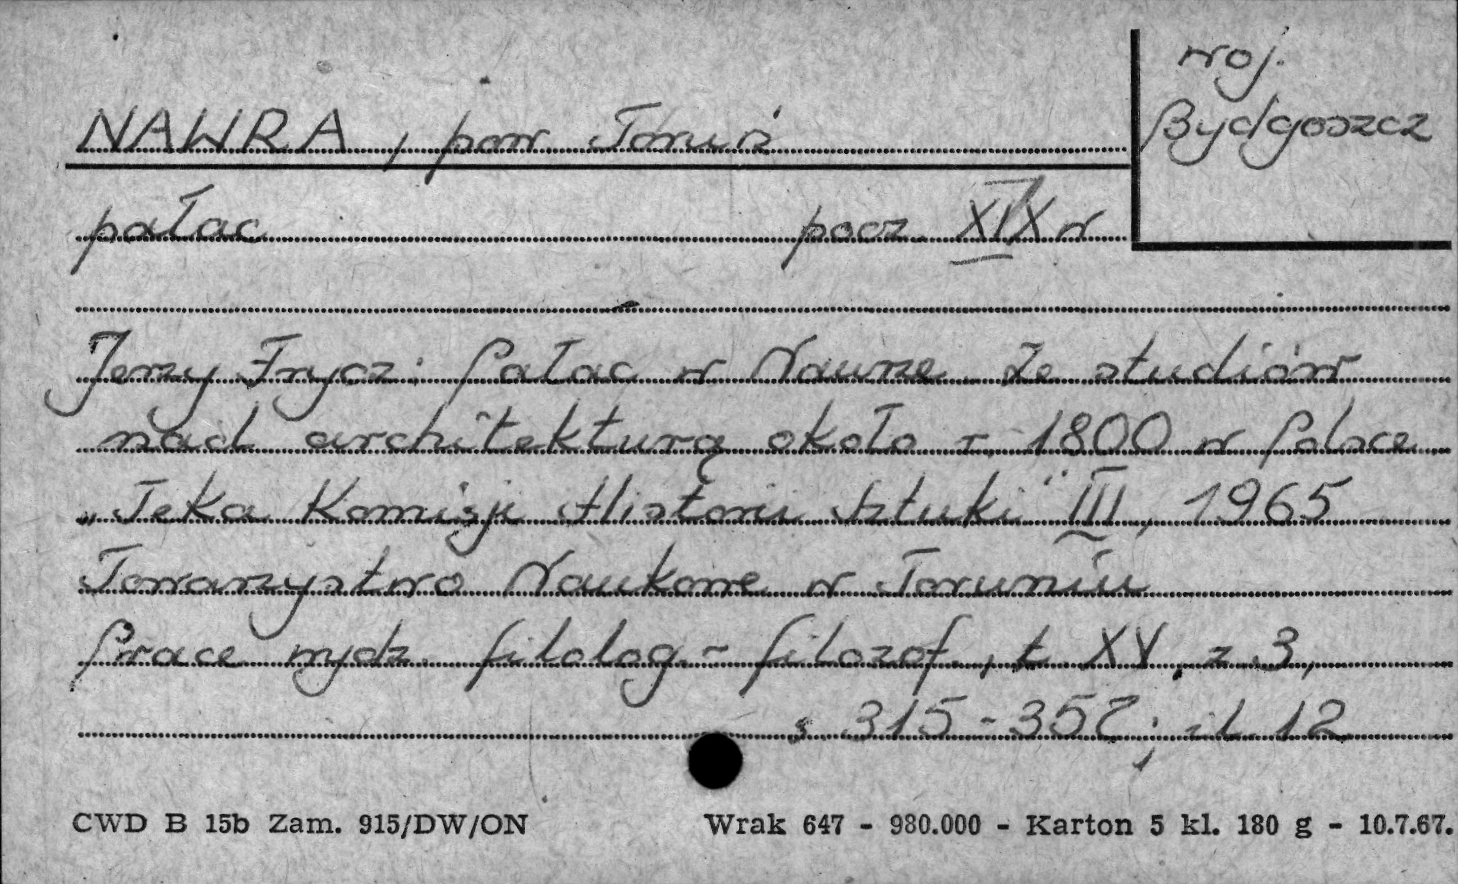 woj.
Bydgoszcz
NAWRA, pow Toruń
pałac pocz. XIX w
Jerzy Frycz: Pałac w Nawrze. Ze studiów
nad architekturą około r. 1800 w Polsce.
„Teka Komisji Historii Sztuki" III, 1965
Towarzystwo Naukowe w Toruniu
Prace wydz. filolog.-filozof., t. XV, z. 3,
s. 315-357; il. 12
CWD B 15b Zam. 915/DW/ON Wrak 647 - 980.000 - Karton 5 kl. 180 g - 10.7.67.